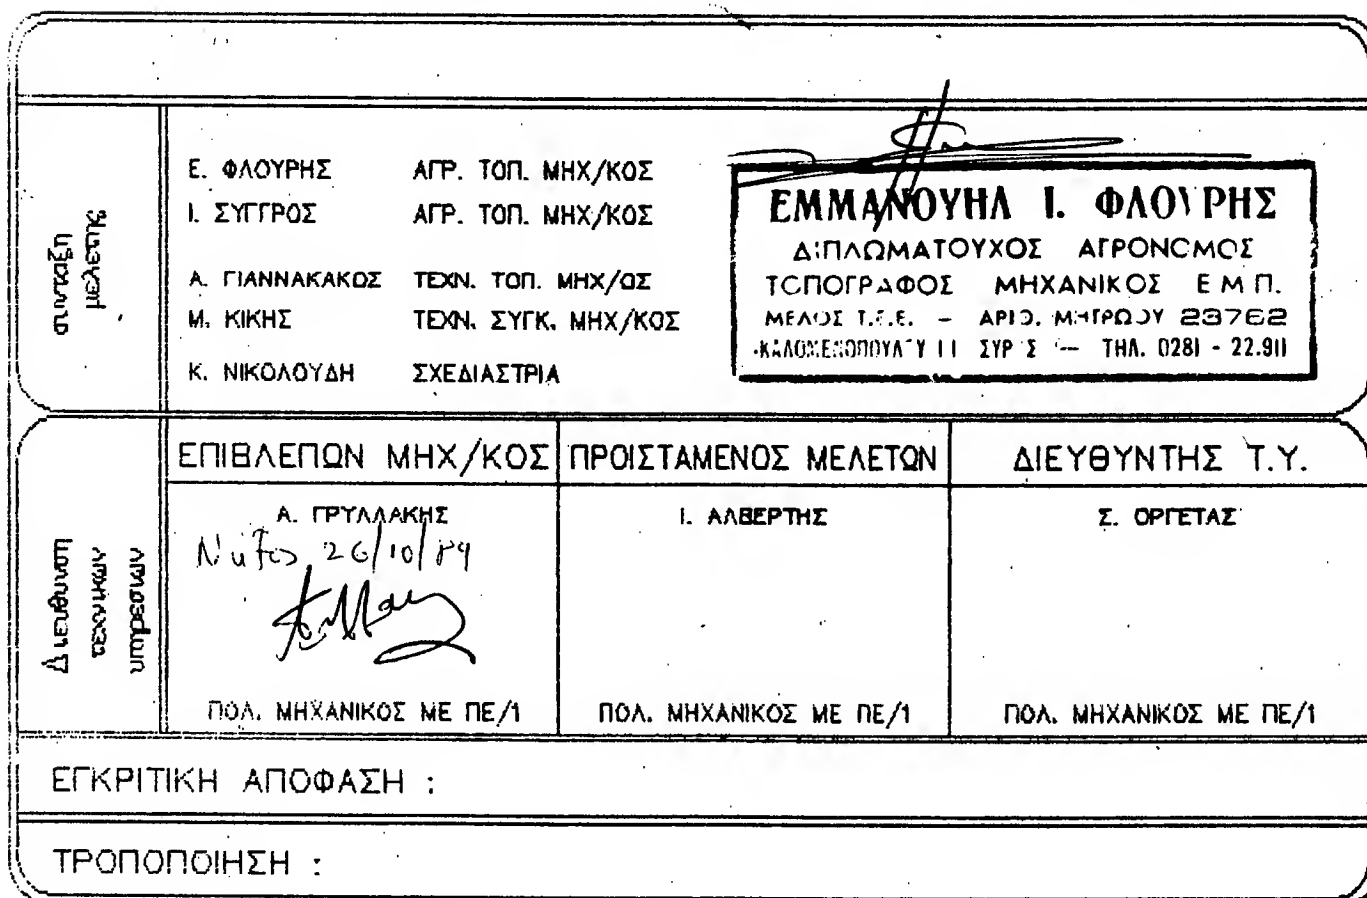 συνταξη
μελετης
Ε. ΦΛΟΥΡΗΣ ΑΓΡ. ΤΟΠ. ΜΗΧ/ΚΟΣ
Ι. ΣΥΓΓΡΟΣ ΑΓΡ. ΤΟΠ. ΜΗΧ/ΚΟΣ
Α. ΓΙΑΝΝΑΚΑΚΟΣ ΤΕΧΝ. ΤΟΠ. ΜΗΧ/ΟΣ
Μ. ΚΙΚΗΣ ΤΕΧΝ. ΣΥΓΚ. ΜΗΧ/ΚΟΣ
Κ. ΝΙΚΟΛΟΥΔΗ ΣΧΕΔΙΑΣΤΡΙΑ
ΕΜΜΑΝΟΥΗΛ Ι. ΦΛΟΥΡΗΣ
ΔΙΠΛΩΜΑΤΟΥΧΟΣ ΑΓΡΟΝΟΜΟΣ
ΤΟΠΟΓΡΑΦΟΣ ΜΗΧΑΝΙΚΟΣ Ε Μ Π.
ΜΕΛΟΣ Τ.Ε.Ε. – ΑΡΙΘ. ΜΗΤΡΩΟΥ 23762
11 ΣΥΡΟΣ — ΤΗΛ. 0281 - 22.911
Διευθυνση
τεχνικων
υπηρεσιων
ΕΠΙΒΛΕΠΩΝ ΜΗΧ/ΚΟΣ
Α. ΓΡΥΛΛΑΚΗΣ
26/10/89
ΠΟΛ. ΜΗΧΑΝΙΚΟΣ ΜΕ ΠΕ/1
ΠΡΟΙΣΤΑΜΕΝΟΣ ΜΕΛΕΤΩΝ
Ι. ΑΛΒΕΡΤΗΣ
ΠΟΛ. ΜΗΧΑΝΙΚΟΣ ΜΕ ΠΕ/1
ΔΙΕΥΘΥΝΤΗΣ Τ.Υ.
Σ. ΟΡΓΕΤΑΣ
ΠΟΛ. ΜΗΧΑΝΙΚΟΣ ΜΕ ΠΕ/1
ΕΓΚΡΙΤΙΚΗ ΑΠΟΦΑΣΗ :
ΤΡΟΠΟΠΟΙΗΣΗ :